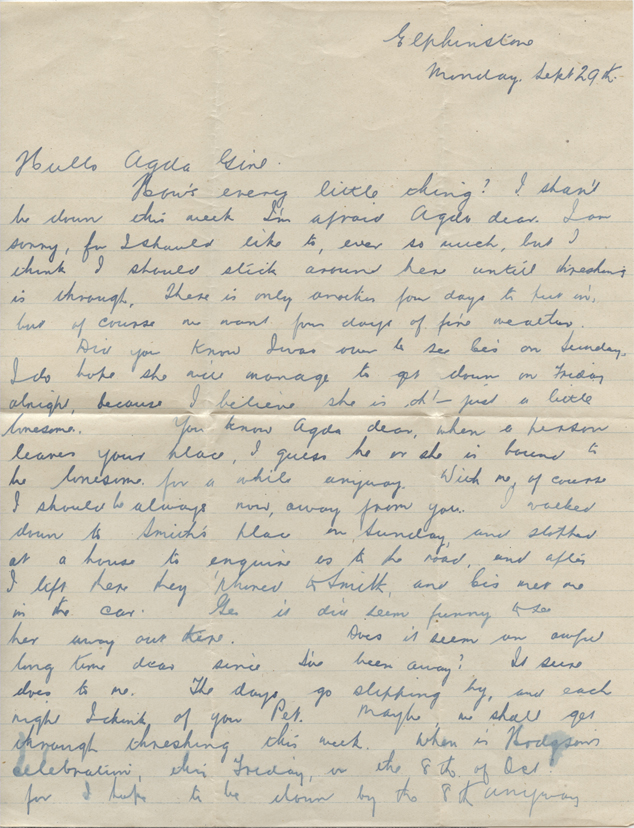 Elphinstone
Monday. Sept 29th.
Hullo Agda Girl.
How's every little thing? I shan't
be down this week I'm afraid Agda dear. I am
sorry, for I should like to, ever so much, but I
think I should stick around here until threshing
is through, There is only another four days to put in,
but of course we want four days of fine weather.
Did you know I was over to see Cis on Sunday.
I do hope she will manage to get down on Friday
alright, because I believe she is oh!— just a little
lonesome. You know Agda dear, when a person
leaves your place, I guess he or she is bound to
be lonesome for a while anyway. With me, of course
I should be always now, away from you. I walked
down to Smith's place on Sunday, and stopped
at a house to enquire as to the road, and after
I left here they 'phoned to Smith, and Cis met me
in the car. Gee it did seem funny to see
her away out there. Does it seem an awful
long time dear since I've been away? It sure
does to me. The days go slipping by, and each
night I think of you Pet. Maybe we shall get
through threshing this week. When is Hodgson's
celebration, this Friday, or the 8th. of Oct.
for I hope to be down by the 8th anyway